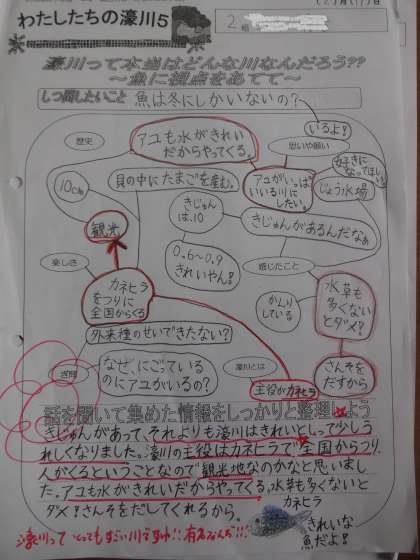 わたしたちの濠川5
2
濠川って本当はどんな川なんだろう??
～魚に視点をあてて～
しつ問したいこと 魚は冬にしかいないの?
いるよ!
歴史
アユも水がきれい
だからやってくる。
思いや願い
好きに
なってほしい。
10cm
貝の中にたまごを産む。
アユがいっぱい
いる川に
したい。
じょう水場
観光
きじゅん
は、10
きじゅんがあるんだなぁ
0.6〜0.9
きれいやん!
楽しさ
感じたこと
カネヒラ
をつりに
全国からくる
かんり
している
水草も
多くない
とダメ?
外来種のせいできたない?
ぎ問
なぜ、にごっている
のにアユがいるの?
濠川とは
主役がカネヒラ
さんそを
だすから
話を聞いて集めた情報をしっかりと整理しよう
きじゅんがあって、それよりも濠川はきれいとしって少しう
れしくなりました。濠川の主役はカネヒラで、全国からつり
人がくるということなので観光地なのかなと思いまし
た。アユも水がきれいだからやってくる。水草も多くないと
ダメ?さんそをだしてくれるから。
カネヒラ
きれいな
魚だよ!
濠川って とってもすごい川ですね!!有名なんだ!!!